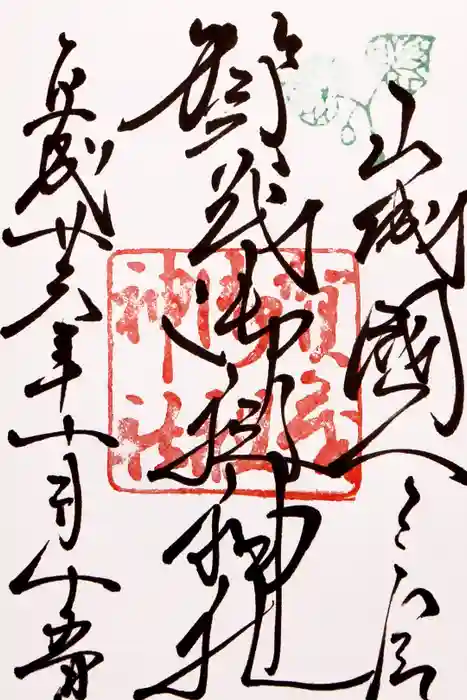 山城國一之宮
賀茂御祖神社
平成廿六年十月十五日
賀茂
御祖
神社